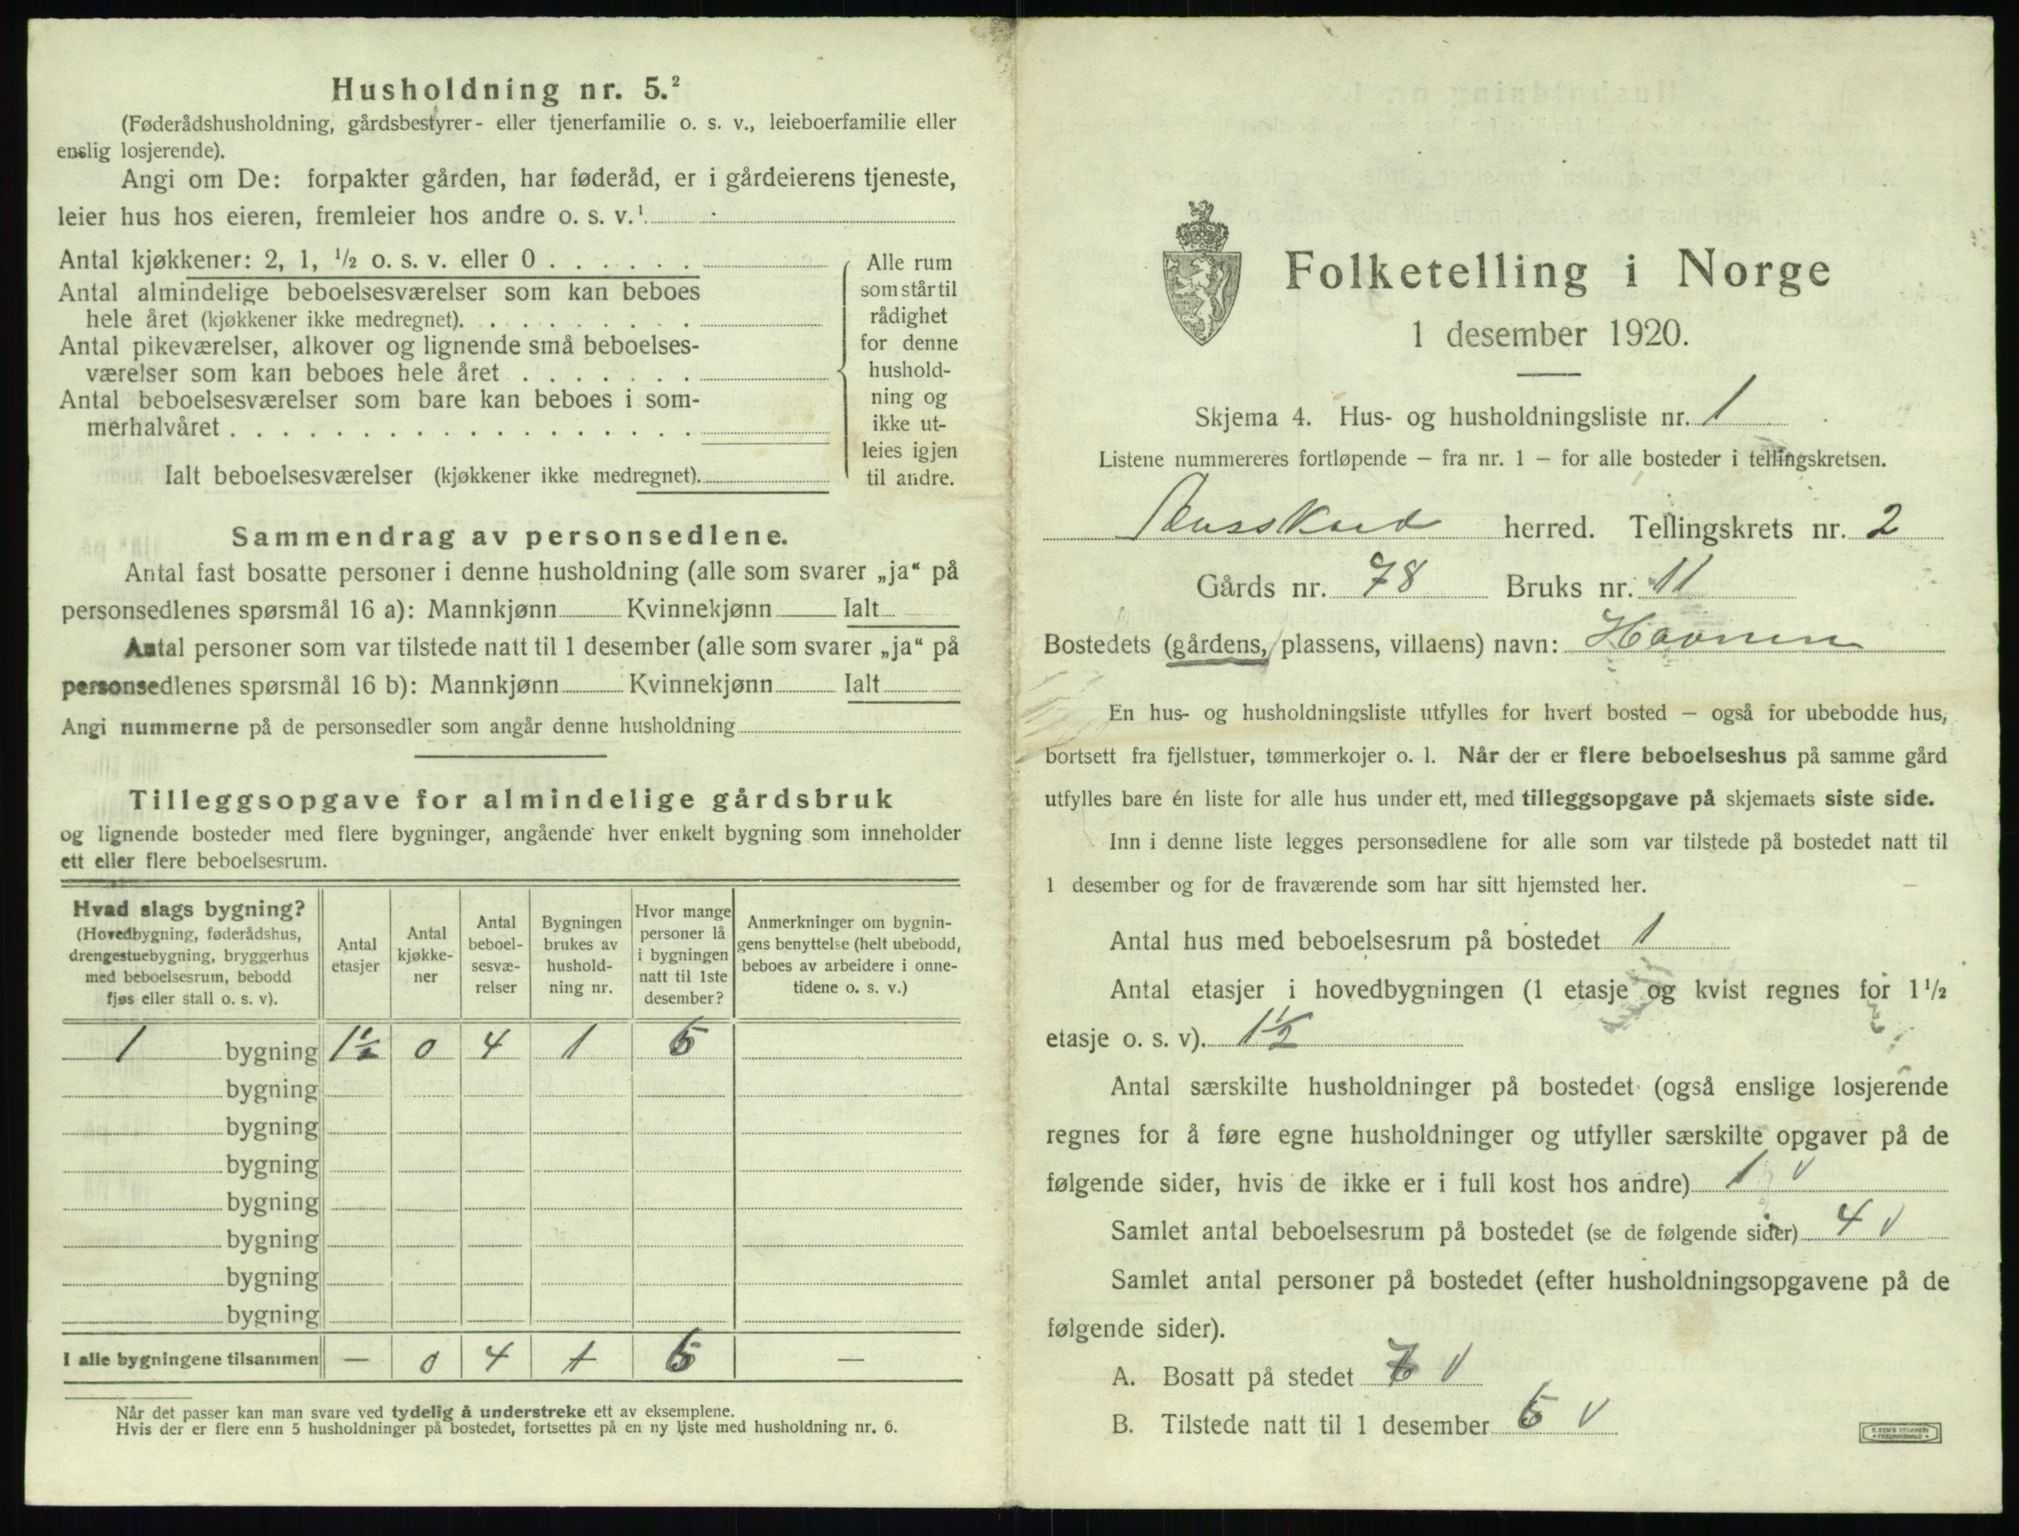 Husholdning nr. 5.²
(Føderådshusholdning, gårdsbestyrer- eller tjenerfamilie o. s. v., leieboerfamilie eller
enslig losjerende).
Angi om De: forpakter gården, har føderåd, er i gårdeierens tjeneste,
leier hus hos eieren, fremleier hos andre o. s. v.¹
Antal kjøkkener: 2, 1, ½ o. s. v. eller 0
Antal almindelige beboelsesværelser som kan beboes
hele året (kjøkkener ikke medregnet).
Antal pikeværelser, alkover og lignende små beboelses-
værelser som kan beboes hele året
Antal beboelsesværelser som bare kan beboes i som-
merhalvåret
Ialt beboelsesværelser (kjøkkener ikke medregnet).
Alle rum
som står til
rådighet
for denne
hushold-
ning og
ikke ut-
leies igjen
til andre.
Sammendrag av personsedlene.
Antal fast bosatte personer i denne husholdning (alle som svarer „ja“ på
personsedlenes spørsmål 16 a): Mannkjønn Kvinnekjønn Ialt
Antal personer som var tilstede natt til 1 desember (alle som svarer „ja“ på
personsedlenes spørsmål 16 b): Mannkjønn Kvinnekjønn Ialt
Angi nummerne på de personsedler som angår denne husholdning
Tilleggsopgave for almindelige gårdsbruk
og lignende bosteder med flere bygninger, angående hver enkelt bygning som inneholder
ett eller flere beboelsesrum.
Hvad slags bygning?
(Hovedbygning, føderådshus,
drengestuebygning, bryggerhus
med beboelsesrum, bebodd
fjøs eller stall o. s. v).
Antal
etasjer
Antal
kjøkke-
ner
Antal
beboel-
sesvæ-
relser
Bygningen
brukes av
hushold-
ning nr.
Hvor mange
personer lå
i bygningen
natt til 1ste
desember?
Anmerkninger om bygnin-
gens benyttelse (helt ubebodd,
beboes av arbeidere i onne-
tidene o. s. v.)
1 bygning 1½ 0 4 1 5
bygning
bygning
bygning
bygning
bygning
bygning
bygning
I alle bygningene tilsammen — 0 4 1 5 —
Når det passer kan man svare ved tydelig å understreke ett av eksemplene.
Hvis der er flere enn 5 husholdninger på bostedet, fortsettes på en ny liste med husholdning nr. 6.
Folketelling i Norge
1 desember 1920.
Skjema 4. Hus- og husholdningsliste nr. 1
Listene nummereres fortløpende – fra nr. 1 – for alle bosteder i tellingskretsen.
herred. Tellingskrets nr. 2
Gårds nr. 78 Bruks nr. 11
Bostedets (gårdens, plassens, villaens) navn: Havnen
En hus- og husholdningsliste utfylles for hvert bosted – også for ubebodde hus,
bortsett fra fjellstuer, tømmerkojer o. l. Når der er flere beboelseshus på samme gård
utfylles bare én liste for alle hus under ett, med tilleggsopgave på skjemaets siste side.
Inn i denne liste legges personsedlene for alle som var tilstede på bostedet natt til
1 desember og for de fraværende som har sitt hjemsted her.
Antal hus med beboelsesrum på bostedet 1
Antal etasjer i hovedbygningen (1 etasje og kvist regnes for 1½
etasje o. s. v). 1½
Antal særskilte husholdninger på bostedet (også enslige losjerende
regnes for å føre egne husholdninger og utfyller særskilte opgaver på de
følgende sider, hvis de ikke er i full kost hos andre) 1 v
Samlet antal beboelsesrum på bostedet (se de følgende sider) 4 v
Samlet antal personer på bostedet (efter husholdningsopgavene på de
følgende sider).
A. Bosatt på stedet 7 v
B. Tilstede natt til 1 desember 5 v